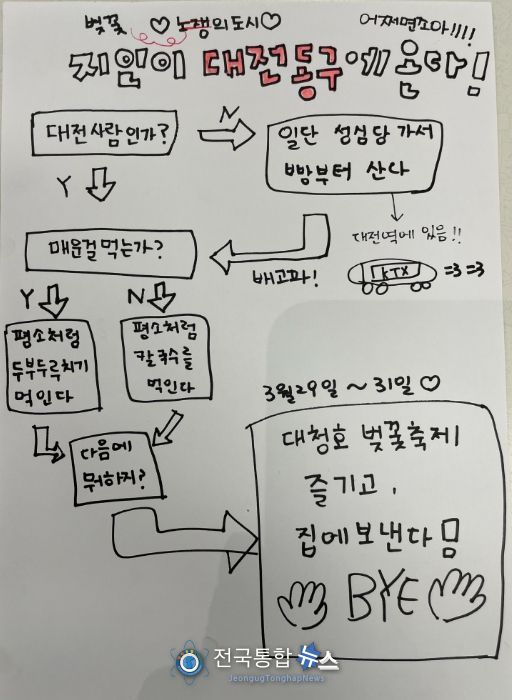 벚꽃
♡ 노잼의 도시♡
어쩌면조아!!!!
지인이 대전동구에온다
대전사람인가?
N
일단 성심당 가서
빵부터 산다
Y
대전역에 있음!!
KTX
=3 =3
배고파!
매운걸먹는가?
Y
N
평소처럼
두부두루치기
먹인다
평소처럼
칼국수를
먹인다
다음에
뭐하지?
3월29일 ~ 31일 ♡
대청호 벚꽃축제
즐기고,
집에보낸다
BYE
전국통합뉴스
JeongugTonghapNews